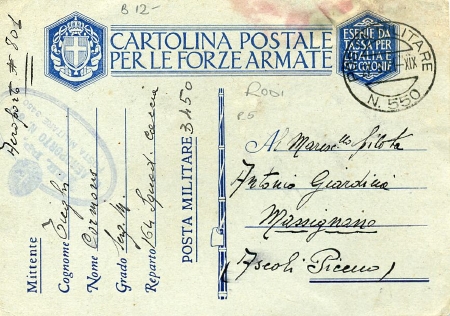 B 12-
CARTOLINA POSTALE
PER LE FORZE ARMATE
ESENTE DA
TASSA PER
L'ITALIA E
POSTA MILITARE
-XIX
N. 550
RODI
Aeroporto # 801
Mittente
Cognome
Nome Cormano
Grado Serg. M
Reparto 164 Squad. Caccia
POSTA MILITARE 3450
Al Maresc.llo pilota
Antonio Giardina
Massignano
(Ascoli Piceno)